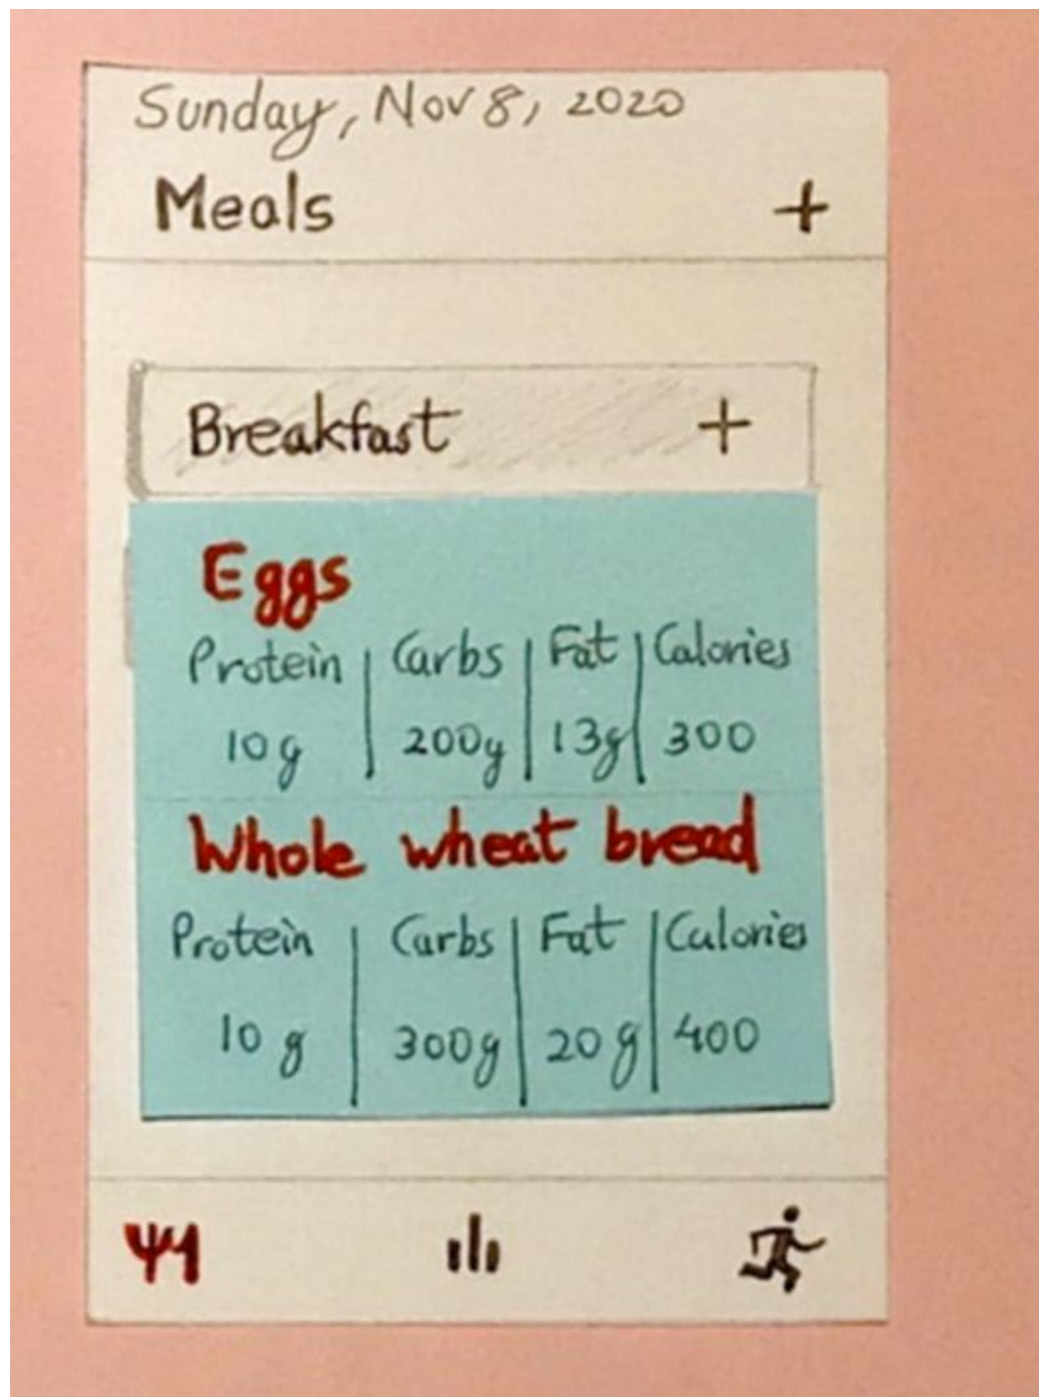 Sunday, Nov 8, 2020
Meals +
Breakfast +
Eggs
Protein Carbs Fat Calories
10g 200g 13g 300
Whole wheat bread
Protein Carbs Fat Calories
10 g 300g 20g 400